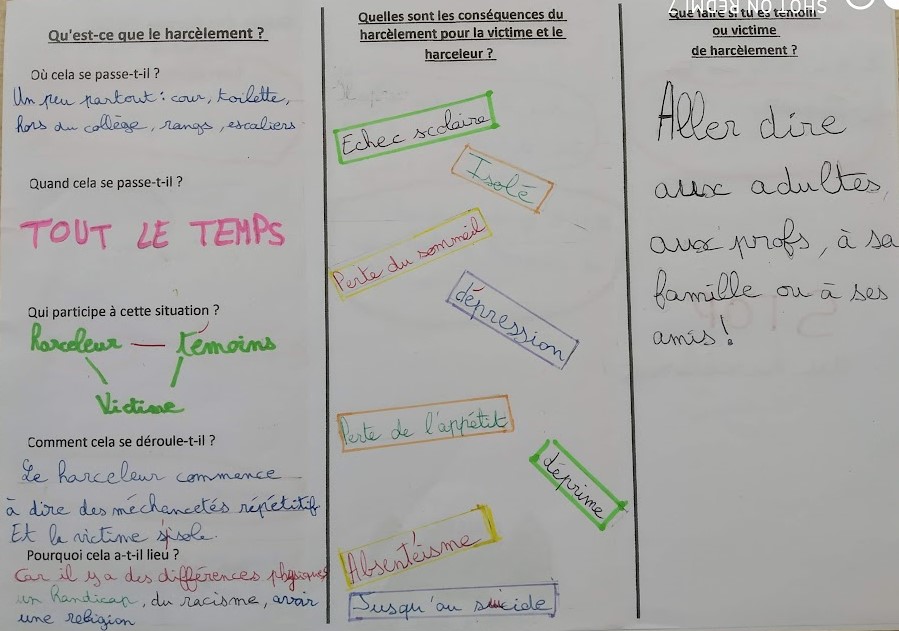 Qu'est-ce que le harcèlement ?
Où cela se passe-t-il ?
Un peu partout : cour, toilette,
hors du collège, rangs, escaliers
Quand cela se passe-t-il ?
TOUT LE TEMPS
Qui participe à cette situation ?
harceleur — témoins
Victime
Comment cela se déroule-t-il ?
Le harceleur commence
à dire des méchancetés répétitif
Et la victime s'isole.
Pourquoi cela a-t-il lieu ?
Car il y a des différences physiques
un handicap, du racisme, avoir
une religion
Quelles sont les conséquences du
harcèlement pour la victime et le
harceleur ?
Echec scolaire
Isolé
Perte du sommeil
dépression
Perte de l'appétit
déprime
Absentéisme
Jusqu'au suicide
SHOT ON REDMI 7
Que faire si tu es témoin
ou victime
de harcèlement ?
Aller dire
aux adultes,
aux profs, à sa
famille ou à ses
amis !
STOP